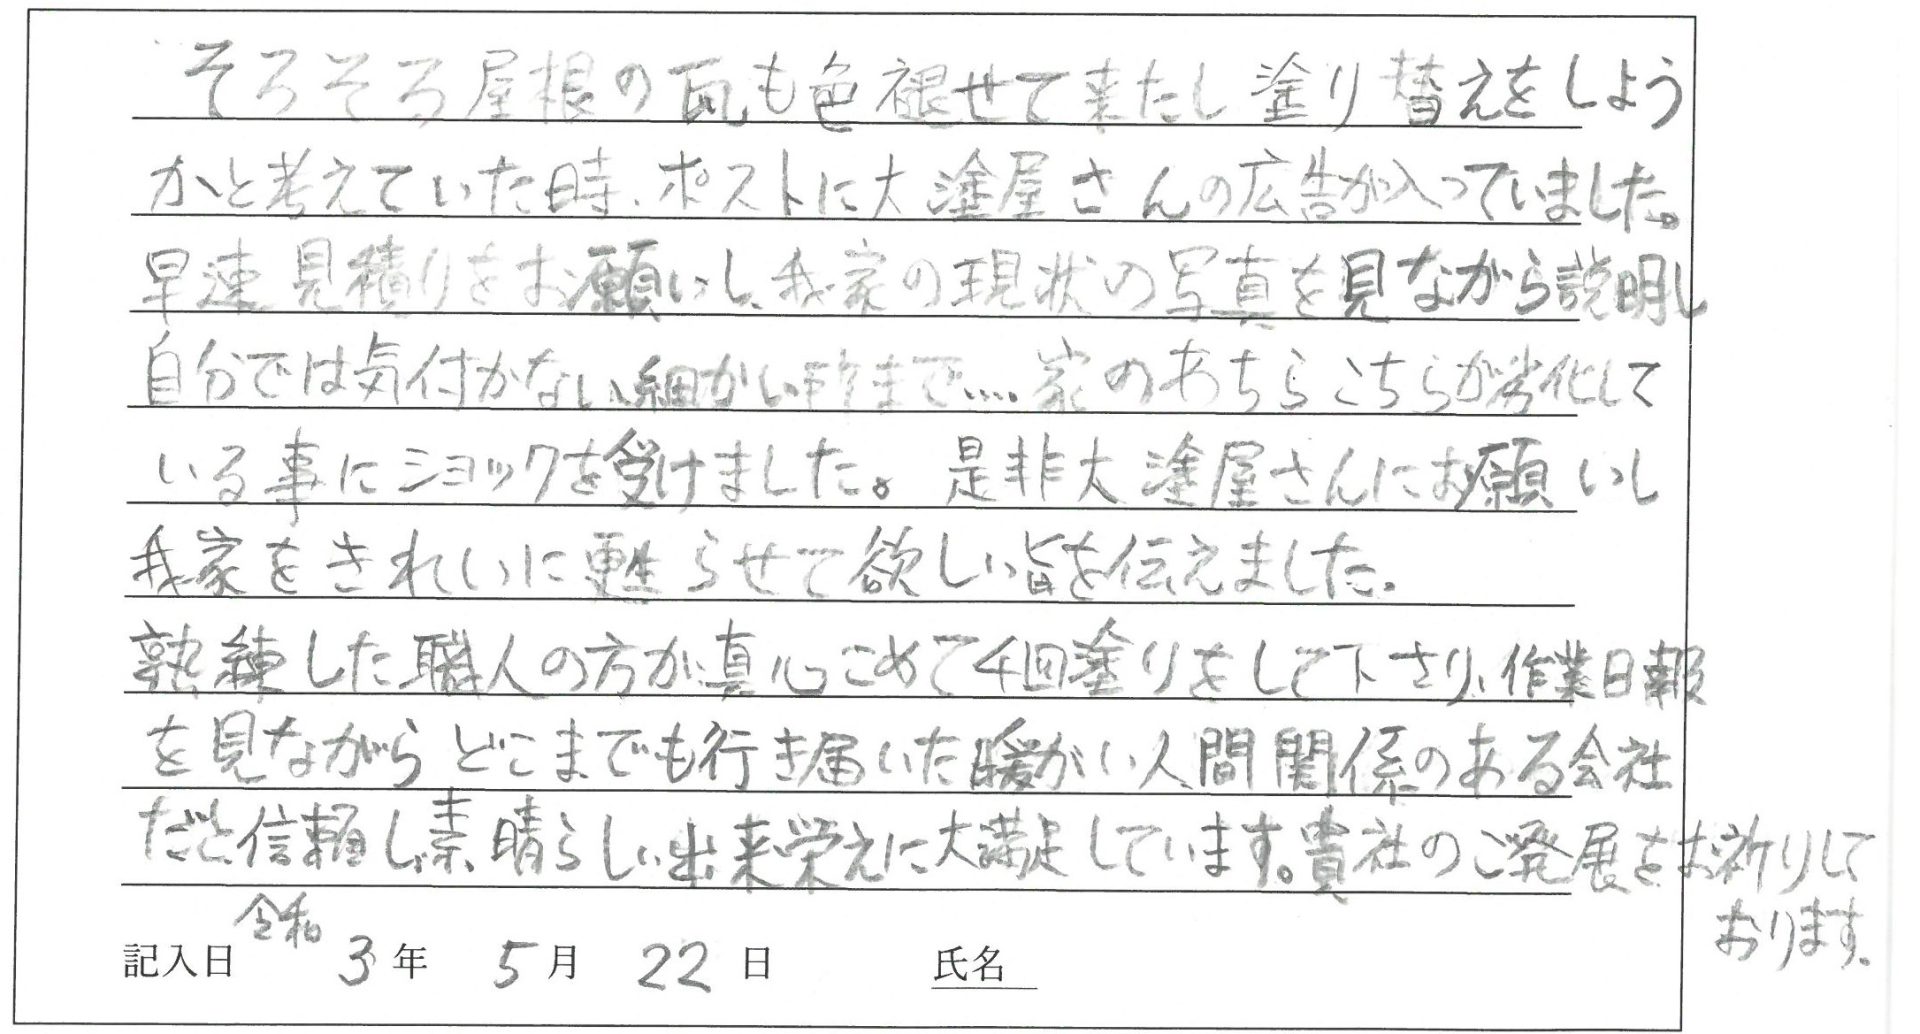 そろそろ屋根の瓦も色褪せて来たし塗り替えをしよう
かと考えていた時、ポストに大塗屋さんの広告が入っていました。
早速見積りをお願いし、我家の現状の写真を見ながら説明し
自分では気付かない細かい所まで…。家のあちらこちらが劣化して
いる事にショックを受けました。是非大塗屋さんにお願いし
我家をきれいに甦らせて欲しい旨を伝えました。
熟練した職人の方が真心こめて4回塗りをして下さり、作業日報
を見ながらどこまでも行き届いた暖かい人間関係のある会社
だと信頼し、素晴らしい出来栄えに大満足しています。貴社のご発展をお祈りして
おります。
記入日 令和 3年 5月 22日 氏名